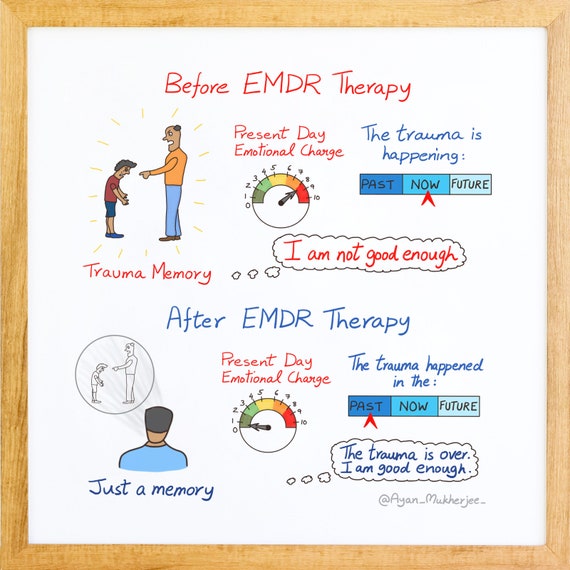 Before EMDR Therapy
Present Day
Emotional Charge
The trauma is
happening:
0 1 2 3 4 5 6 7 8 9 10
PAST NOW FUTURE
I am not good enough
Trauma Memory
After EMDR Therapy
Present Day
Emotional Charge
The trauma happened
in the:
0 1 2 3 4 5 6 7 8 9 10
PAST NOW FUTURE
The trauma is over.
I am good enough.
Just a memory
@Ayan_Mukherjee_